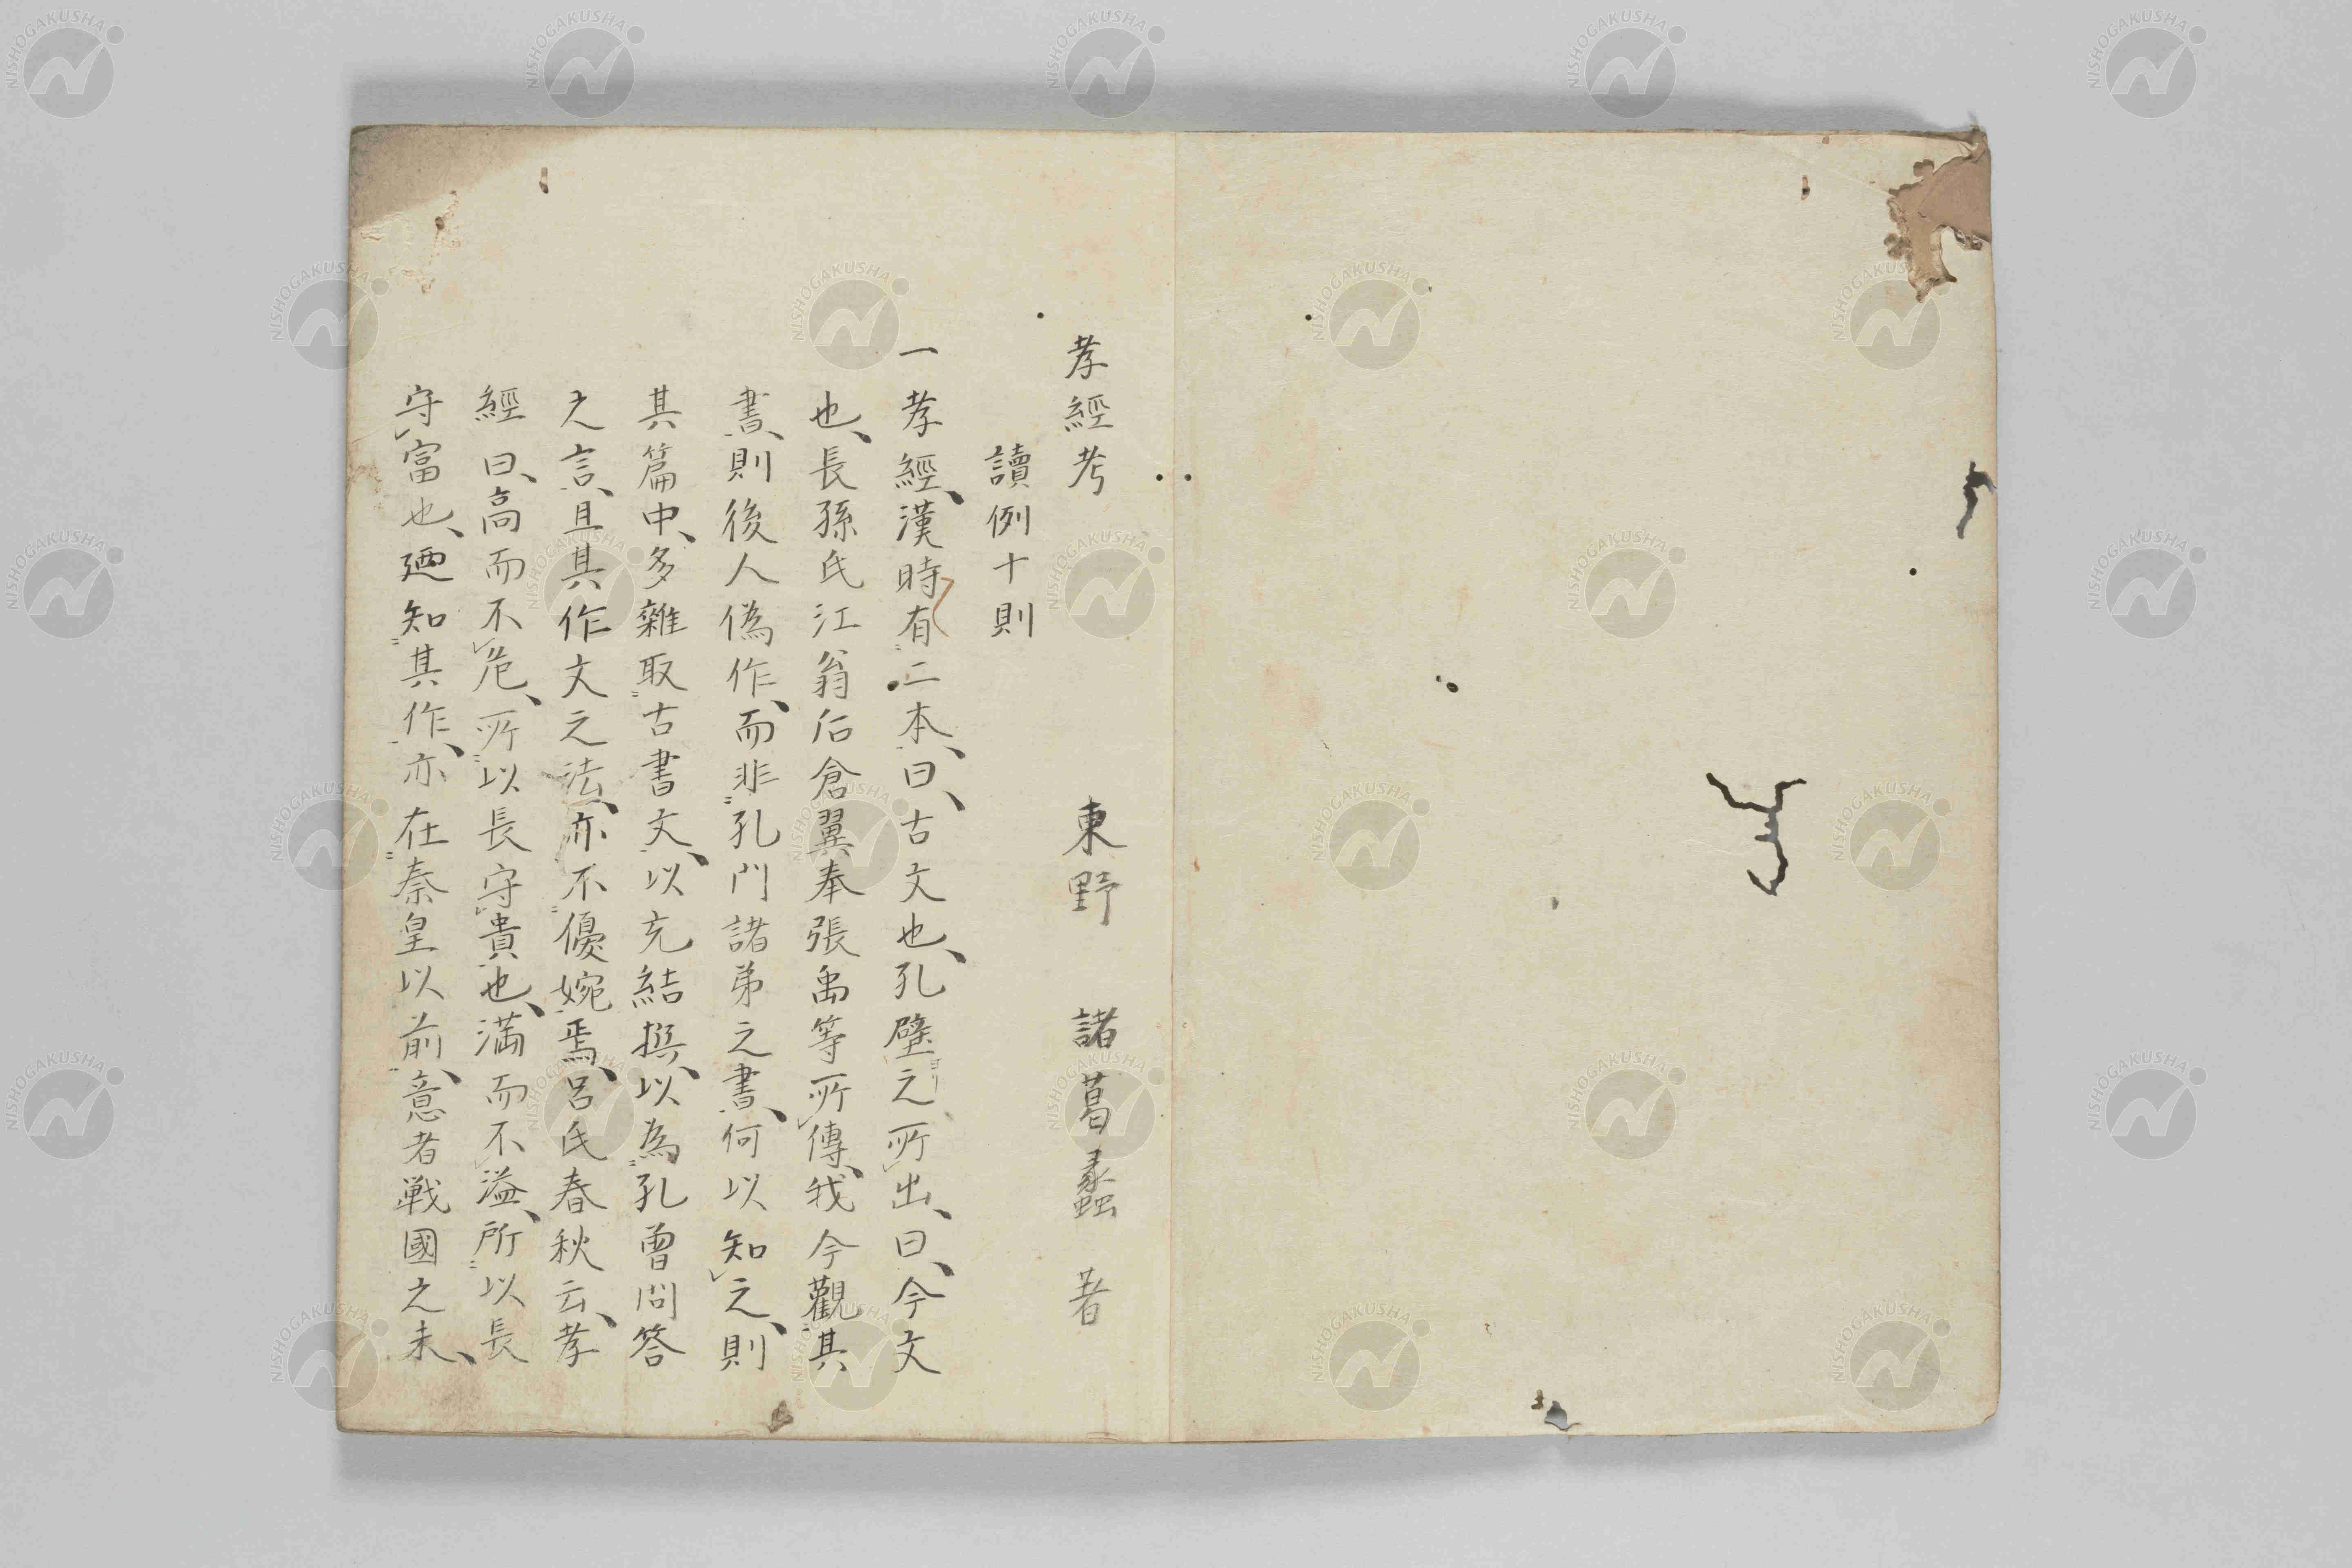 孝經考　東野　諸葛蠡　著
讀例十則
一孝經、漢時有二本、曰、古文也、孔壁之所出、曰、今文
也、長孫氏江翁后倉翼奉張禹等所傳、我今觀其
書、則後人偽作、而非孔門諸弟之書、何以知之、則
其篇中、多雜取古書文、以充結撰、以為孔曾問答
之言、且其作文之法、亦不優婉焉、呂氏春秋云、孝
經曰、高而不危、所以長守貴也、満而不溢、所以長
守富也、廼知其作、亦在秦皇以前、意者戦國之末、
NISHOGAKUSHA